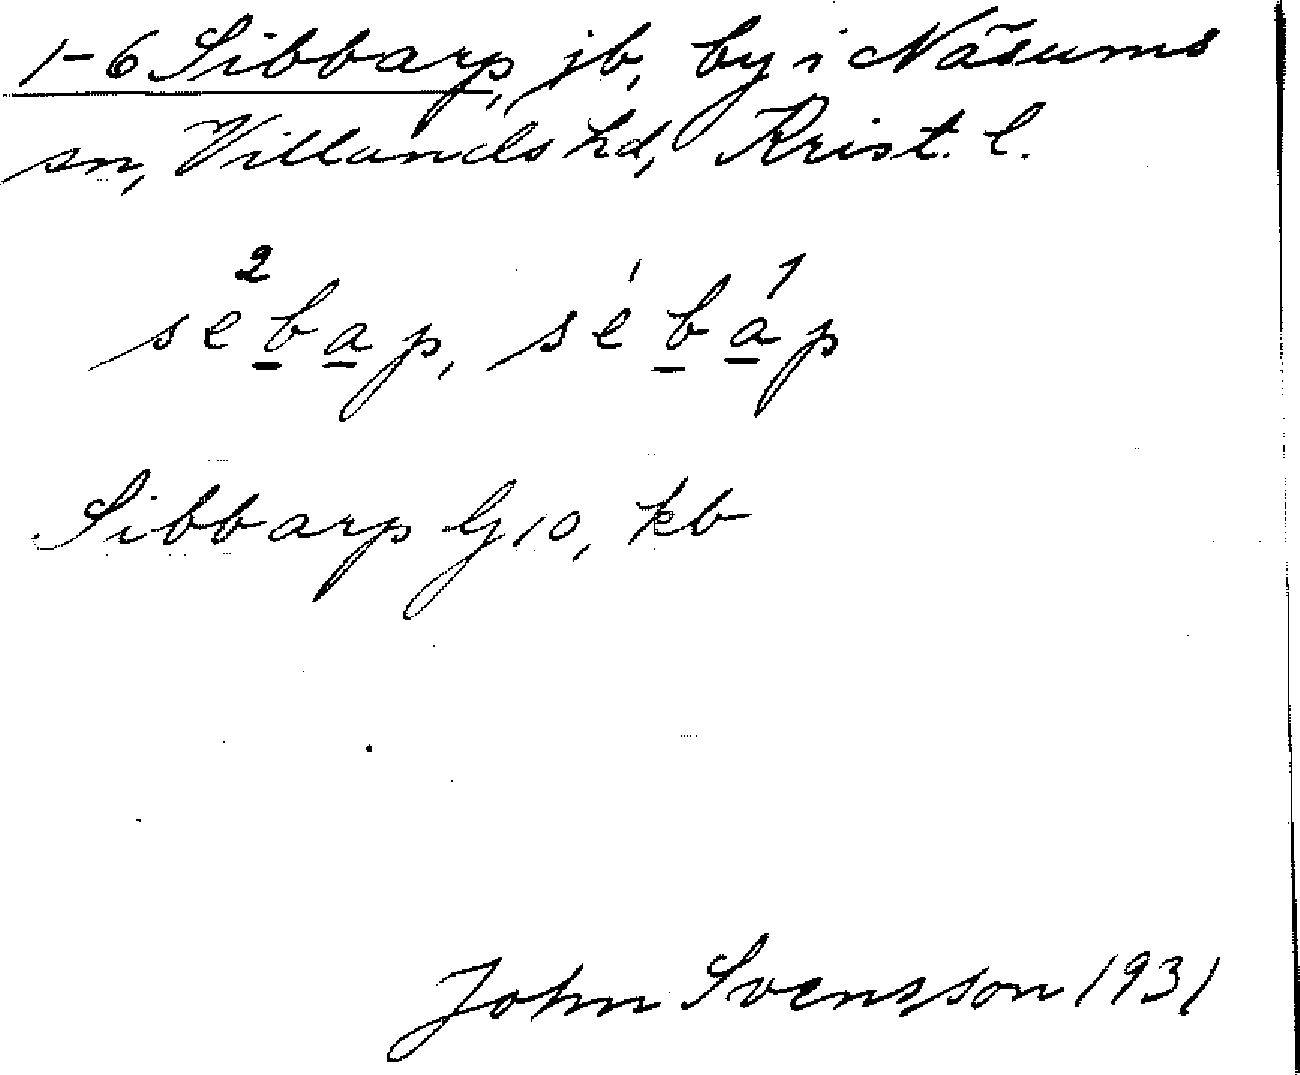 1-6 Sibbarp, jb, by i Näsums
sn, Villands hd, Krist. l.
se²bap, sé'bá¹p
Sibbarp G10, kb
John Svensson 1931